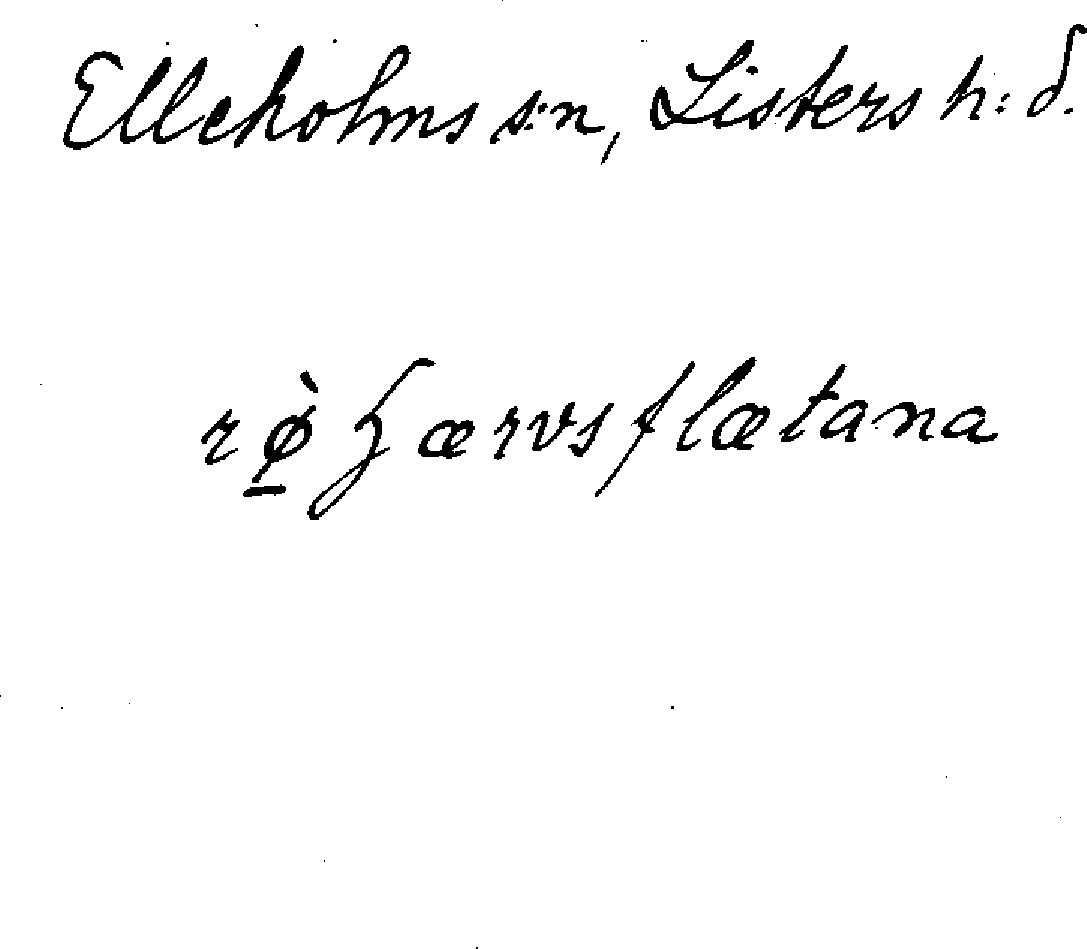 Elleholms s:n, Listers h:d.
rø̠̀ʒærvsflætana